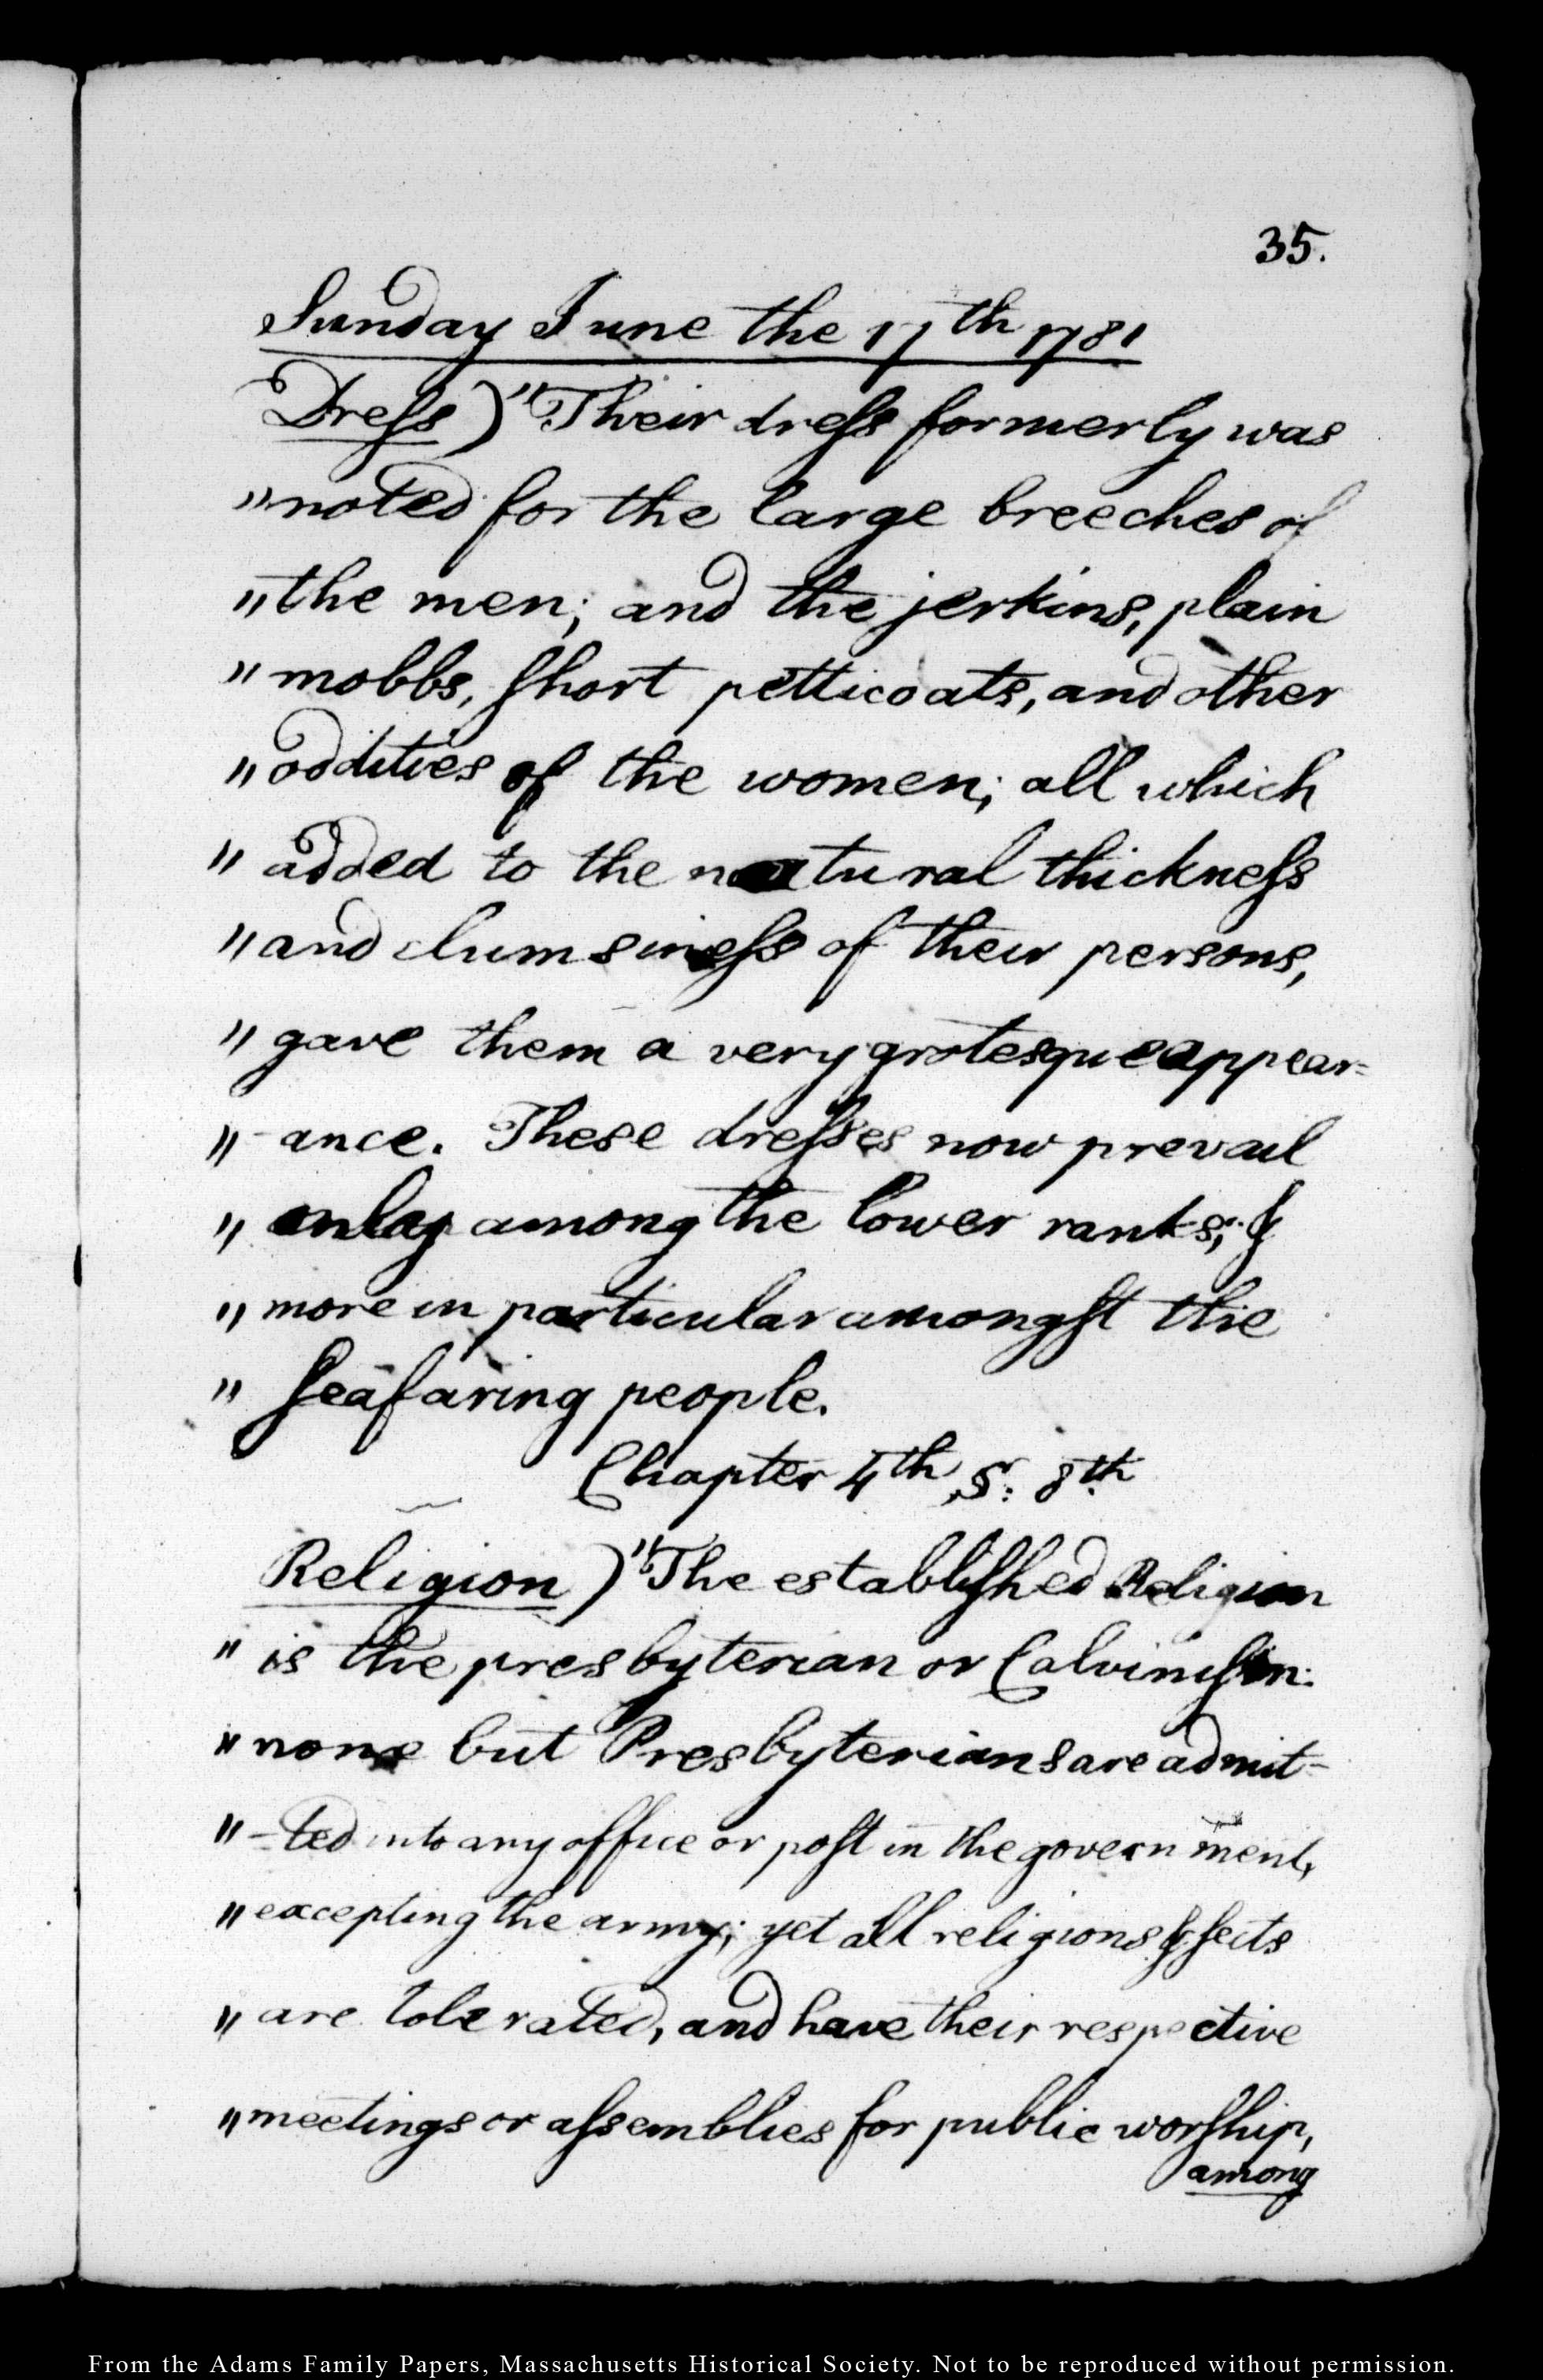 35.
Sunday June the 17th 1781
Dress) "Their dress formerly was
"noted for the large breeches of
"the men; and the jerkins, plain
"mobbs, short petticoats, and other
"oddities of the women; all which
"added to the natural thickness
"and clumsiness of their persons,
"gave them a very grotesque appear=
"-ance. These dresses now prevail
"only among the lower ranks; &
"more in particular amongst the
"seafaring people.
Chapter 4th Sr: 8th
Religion) "The established Religion
"is the presbyterian or Calvinism:
"none but Presbyterians are admit-
"-ted into any office or post in the government,
"excepting the army; yet all religions & sects
"are tolerated, and have their respective
"meetings or assemblies for public worship,
among
From the Adams Family Papers, Massachusetts Historical Society. Not to be reproduced without permission.